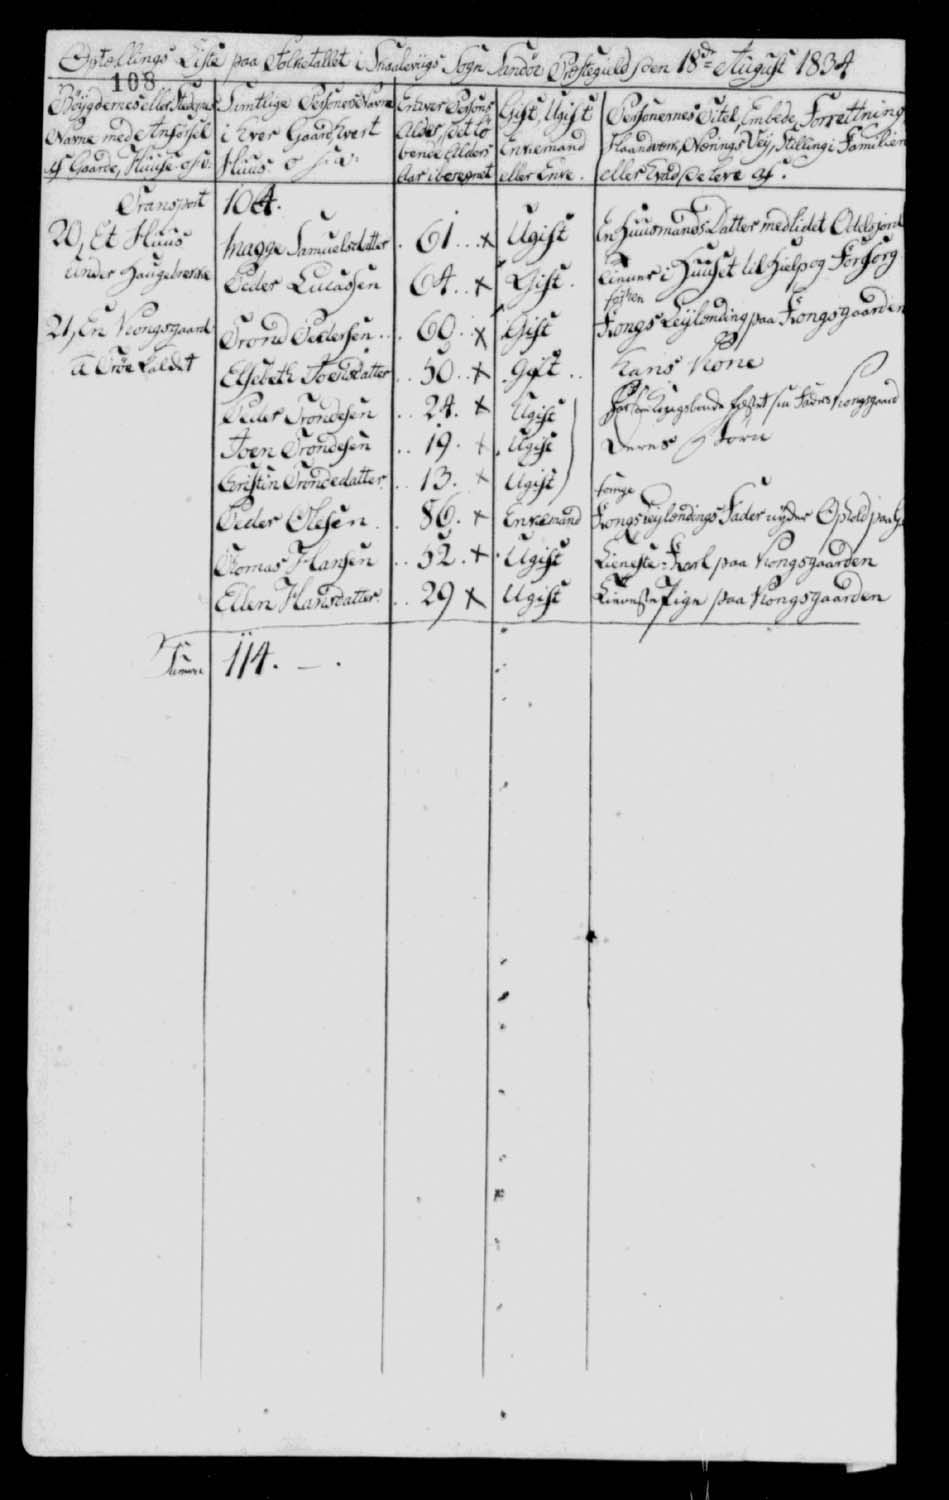 Optællings Liste paa Folketallet i Skaalevigs Sogn Sandöe Præstegield den 18de August 1834
108
Böygdernes eller Stædernes Navne med Anförsel af Gaarde, Huuse osv:
Samtlige Personers Navne i hver Gaard hvert Huus o s v:
Enhver Persons Alder, det löbende Alders Aar iberegnet
Gift, Ugift Enkemand eller Enke.
Personernes Titel, Embede, Forretning Haandværk, Nærings Vey, Stilling i Familien eller hvad de leve af.
Transport 104.
20, Et Huus Magge Samuelsdatter 61 x Ugift En Huusmands Datter med lidet Odelsjord
under Peder Lucassen 64 x Gift. tiener i Huuset til Hielp og Forsorg
21, En Kongsgaard Trond Pedersen 60 x Gift Kongs Leylending paa Kongsgaarden
Tröe kaldet Elsebeth Joensdatter 50 x Gift Hans Kone
Peder Trondesen 24. x Ugift
Joen Trondesen 19. x Ugift Deres Börn
Christin Trondedatter 13. x Ugift
forrige
Peder Olesen 86. x Enkemand Kongsleylendings Fader nyder Ophold paa
Thomas Hansen 52. x Ugift Tieneste-Karl paa Kongsgaarden
Ellen Hansdatter. 29 x Ugift Tieneste Pige paa Kongsgaarden
Summa 114.